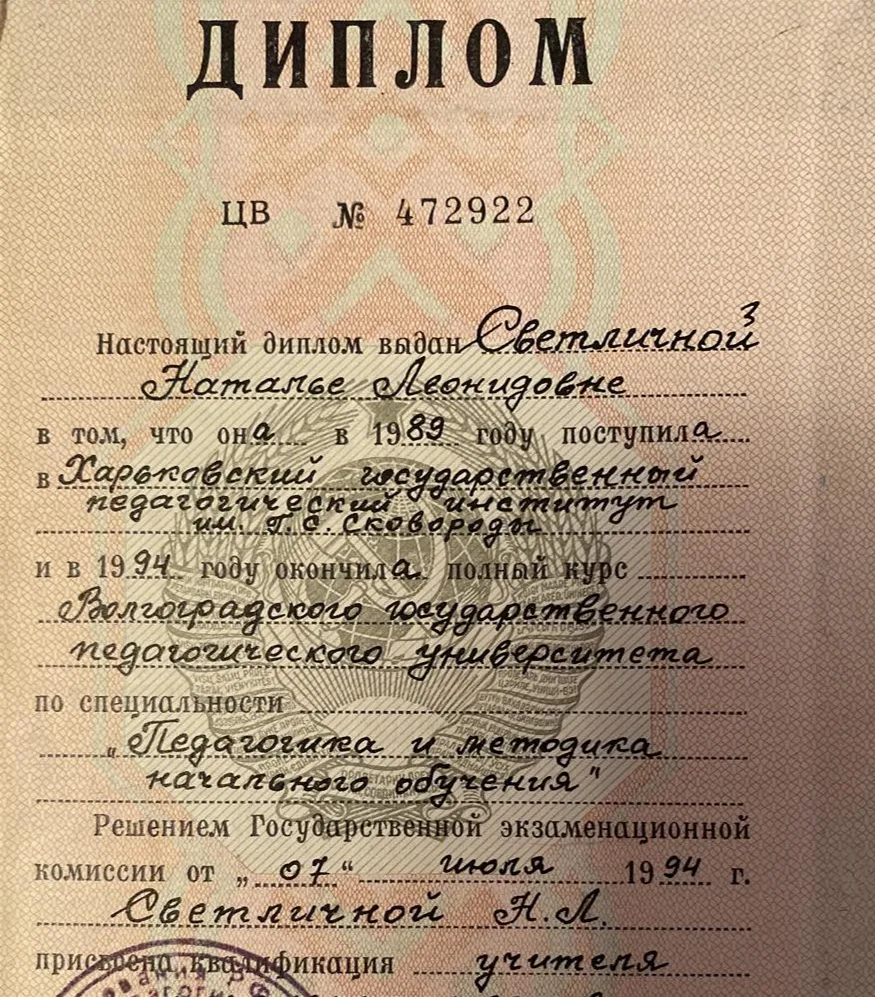 ДИПЛОМ
ЦВ № 472922
Настоящий диплом выдан Светличной
Наталье Леонидовне
в том, что она в 1989 году поступила
в Харьковский государственный
педагогический институт
им. Г.С. Сковороды
и в 1994 году окончила полный курс
Волгоградского государственного
педагогического университета
по специальности
„Педагогика и методика
начального обучения"
Решением Государственной экзаменационной
комиссии от „07“ июля 1994 г.
Светличной Н.Л.
присвоена квалификация учителя